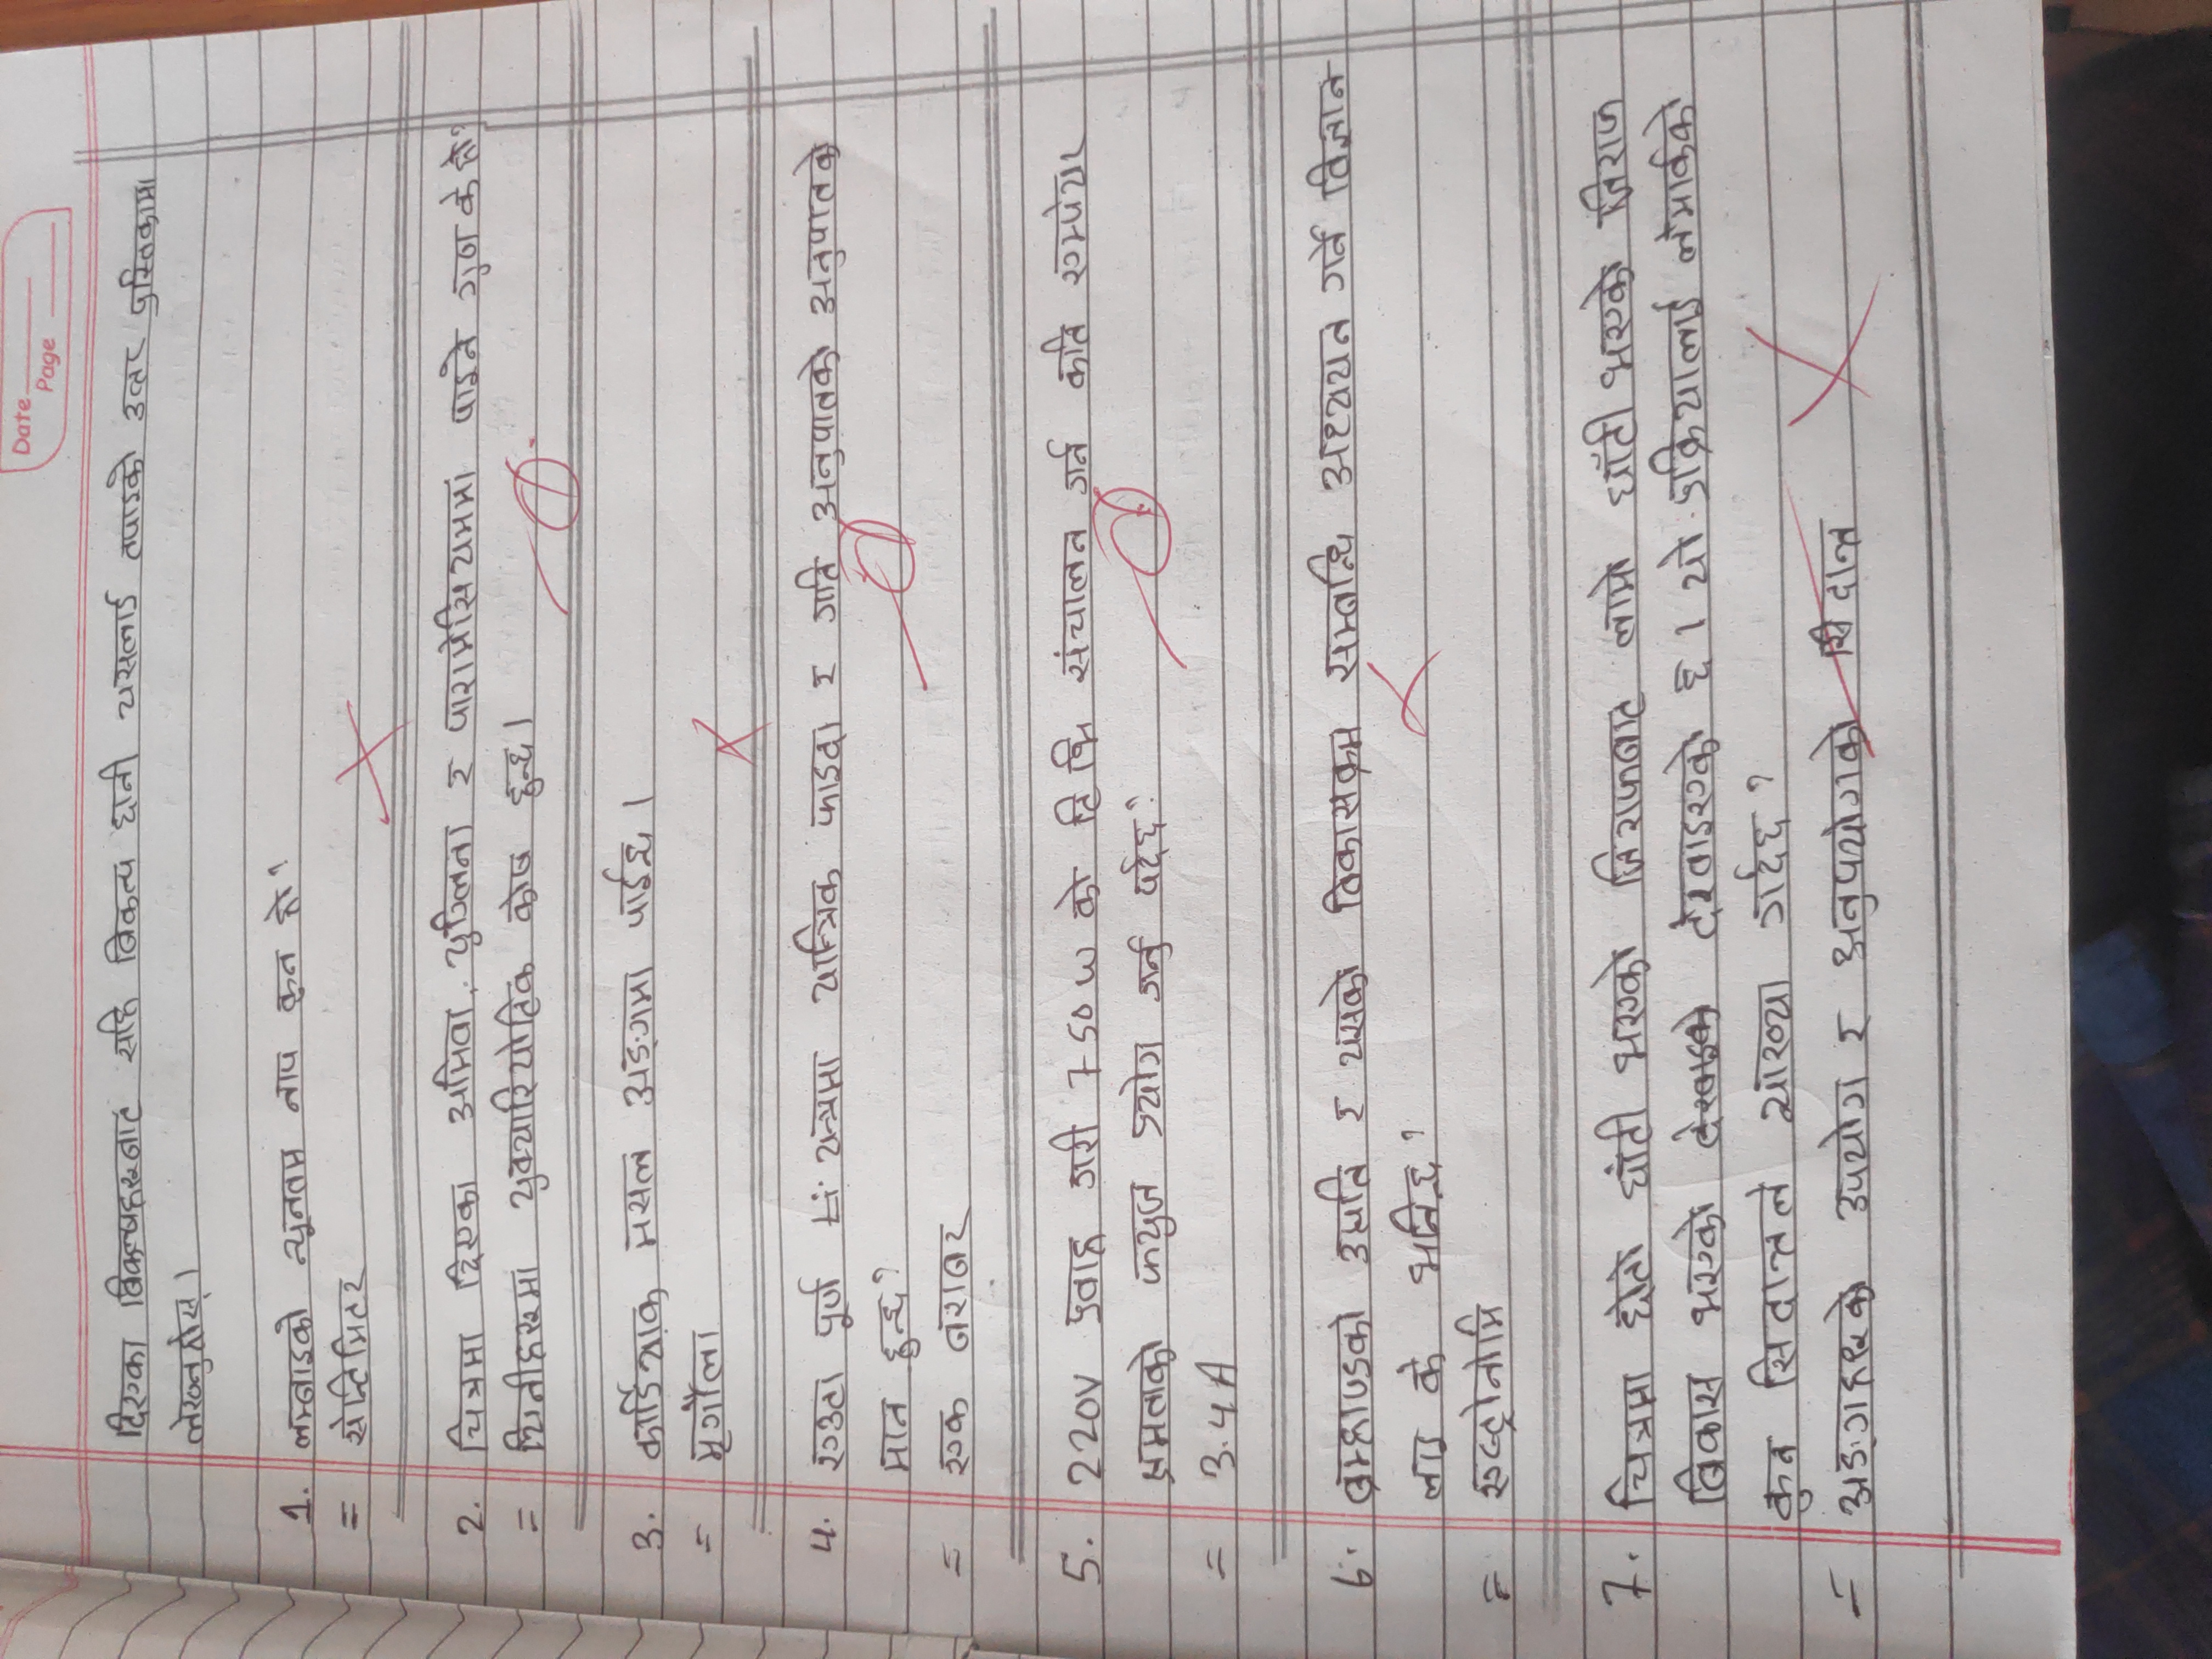 Date
Page
दिएका बिकल्पहरूबाट सहि बिकल्प छानी यसलाई तपाइको उत्तर पुस्तिकामा
लेख्नुहोस्।
1. लम्बाइको न्यूनतम नाप कुन हो?
= सेन्टिमिटर
2. चित्रमा दिएका अमिवा, युग्लिना र पारामेसियममा पाइने गुण के हो?
= यिनीहरूमा युक्यारियोटिक कोष हुन्छ।
3. कार्डियाक मसल अङ्गमा पाईन्छ।
= मृगौला
4. एउटा पूर्ण यन्त्रमा यान्त्रिक फाइदा र गति अनुपातको अनुपातको
मान हुन्छ?
= एक बराबर
5. 220V प्रवाह गरी 750W को टि भि संचालन गर्न कति एम्पेयर
क्षमताको फयुज प्रयोग गर्नु पर्दछ?
= 3.4A
6. ब्रम्हाण्डको उत्पति र यसको विकासक्रम सम्बन्धि अध्ययन गर्ने विज्ञान
लाइ के भनिन्छ?
= एस्ट्रोनोमि
7. चित्रमा छोतो घाँटी भएको जिराफबाट लामो घाँटी भएको जिराफ
बिकास भएको देखाइएको छ। यो प्रक्रियालाई लेमार्कको
कुन सिदान्तले व्याख्या गर्दछ?
= अङ्गहरूको उपयोग र अनुपयोगको सिदान्त